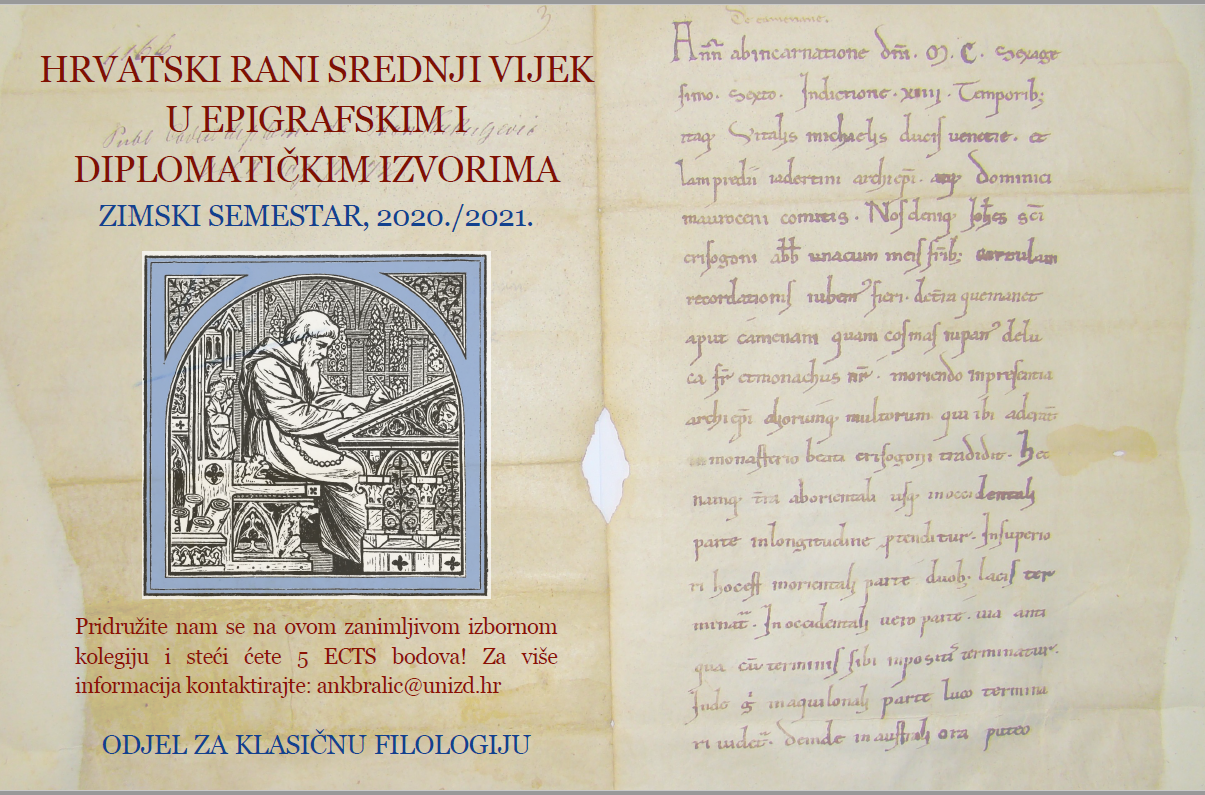 HRVATSKI RANI SREDNJI VIJEK
U EPIGRAFSKIM I
DIPLOMATIČKIM IZVORIMA
ZIMSKI SEMESTAR, 2020./2021.
Pridružite nam se na ovom zanimljivom izbornom
kolegiju i steći ćete 5 ECTS bodova! Za više
informacija kontaktirajte: ankbralic@unizd.hr
ODJEL ZA KLASIČNU FILOLOGIJU
3
ab incarnatione dñi. M. C. Sexage
simo. Sexto. Indictione. xiiii. Temporib;
itaq; Vitalis michaelis ducis venetie. et
lampredii iadertini archiep̄i. Dominici
mauroceni comitis. Nos deniq; sc̄i
crisogoni abb̄ unacum meis fr̄ib; cartulam
recordationis fieri. que manet
aput camenam quam cosmas iupan' delu
ca fr̄ et monachus nr̄. moriendo in presentia
archiep̄i multorum qui ibi
monasterio beati crisogoni tradidit. Hec
namq; t̄ra ab orientali usq; in occidentali
parte in longitudine p̄tenditur. In superio
ri hoc est in orientali parte duob; lacis ter
minat̄. In occidentali vero parte. via anti
qua cū terminis sibi inposit̄ terminatur.
Inde in aquilonali parte luco termina
ri videt̄. deinde in australi ora puteo